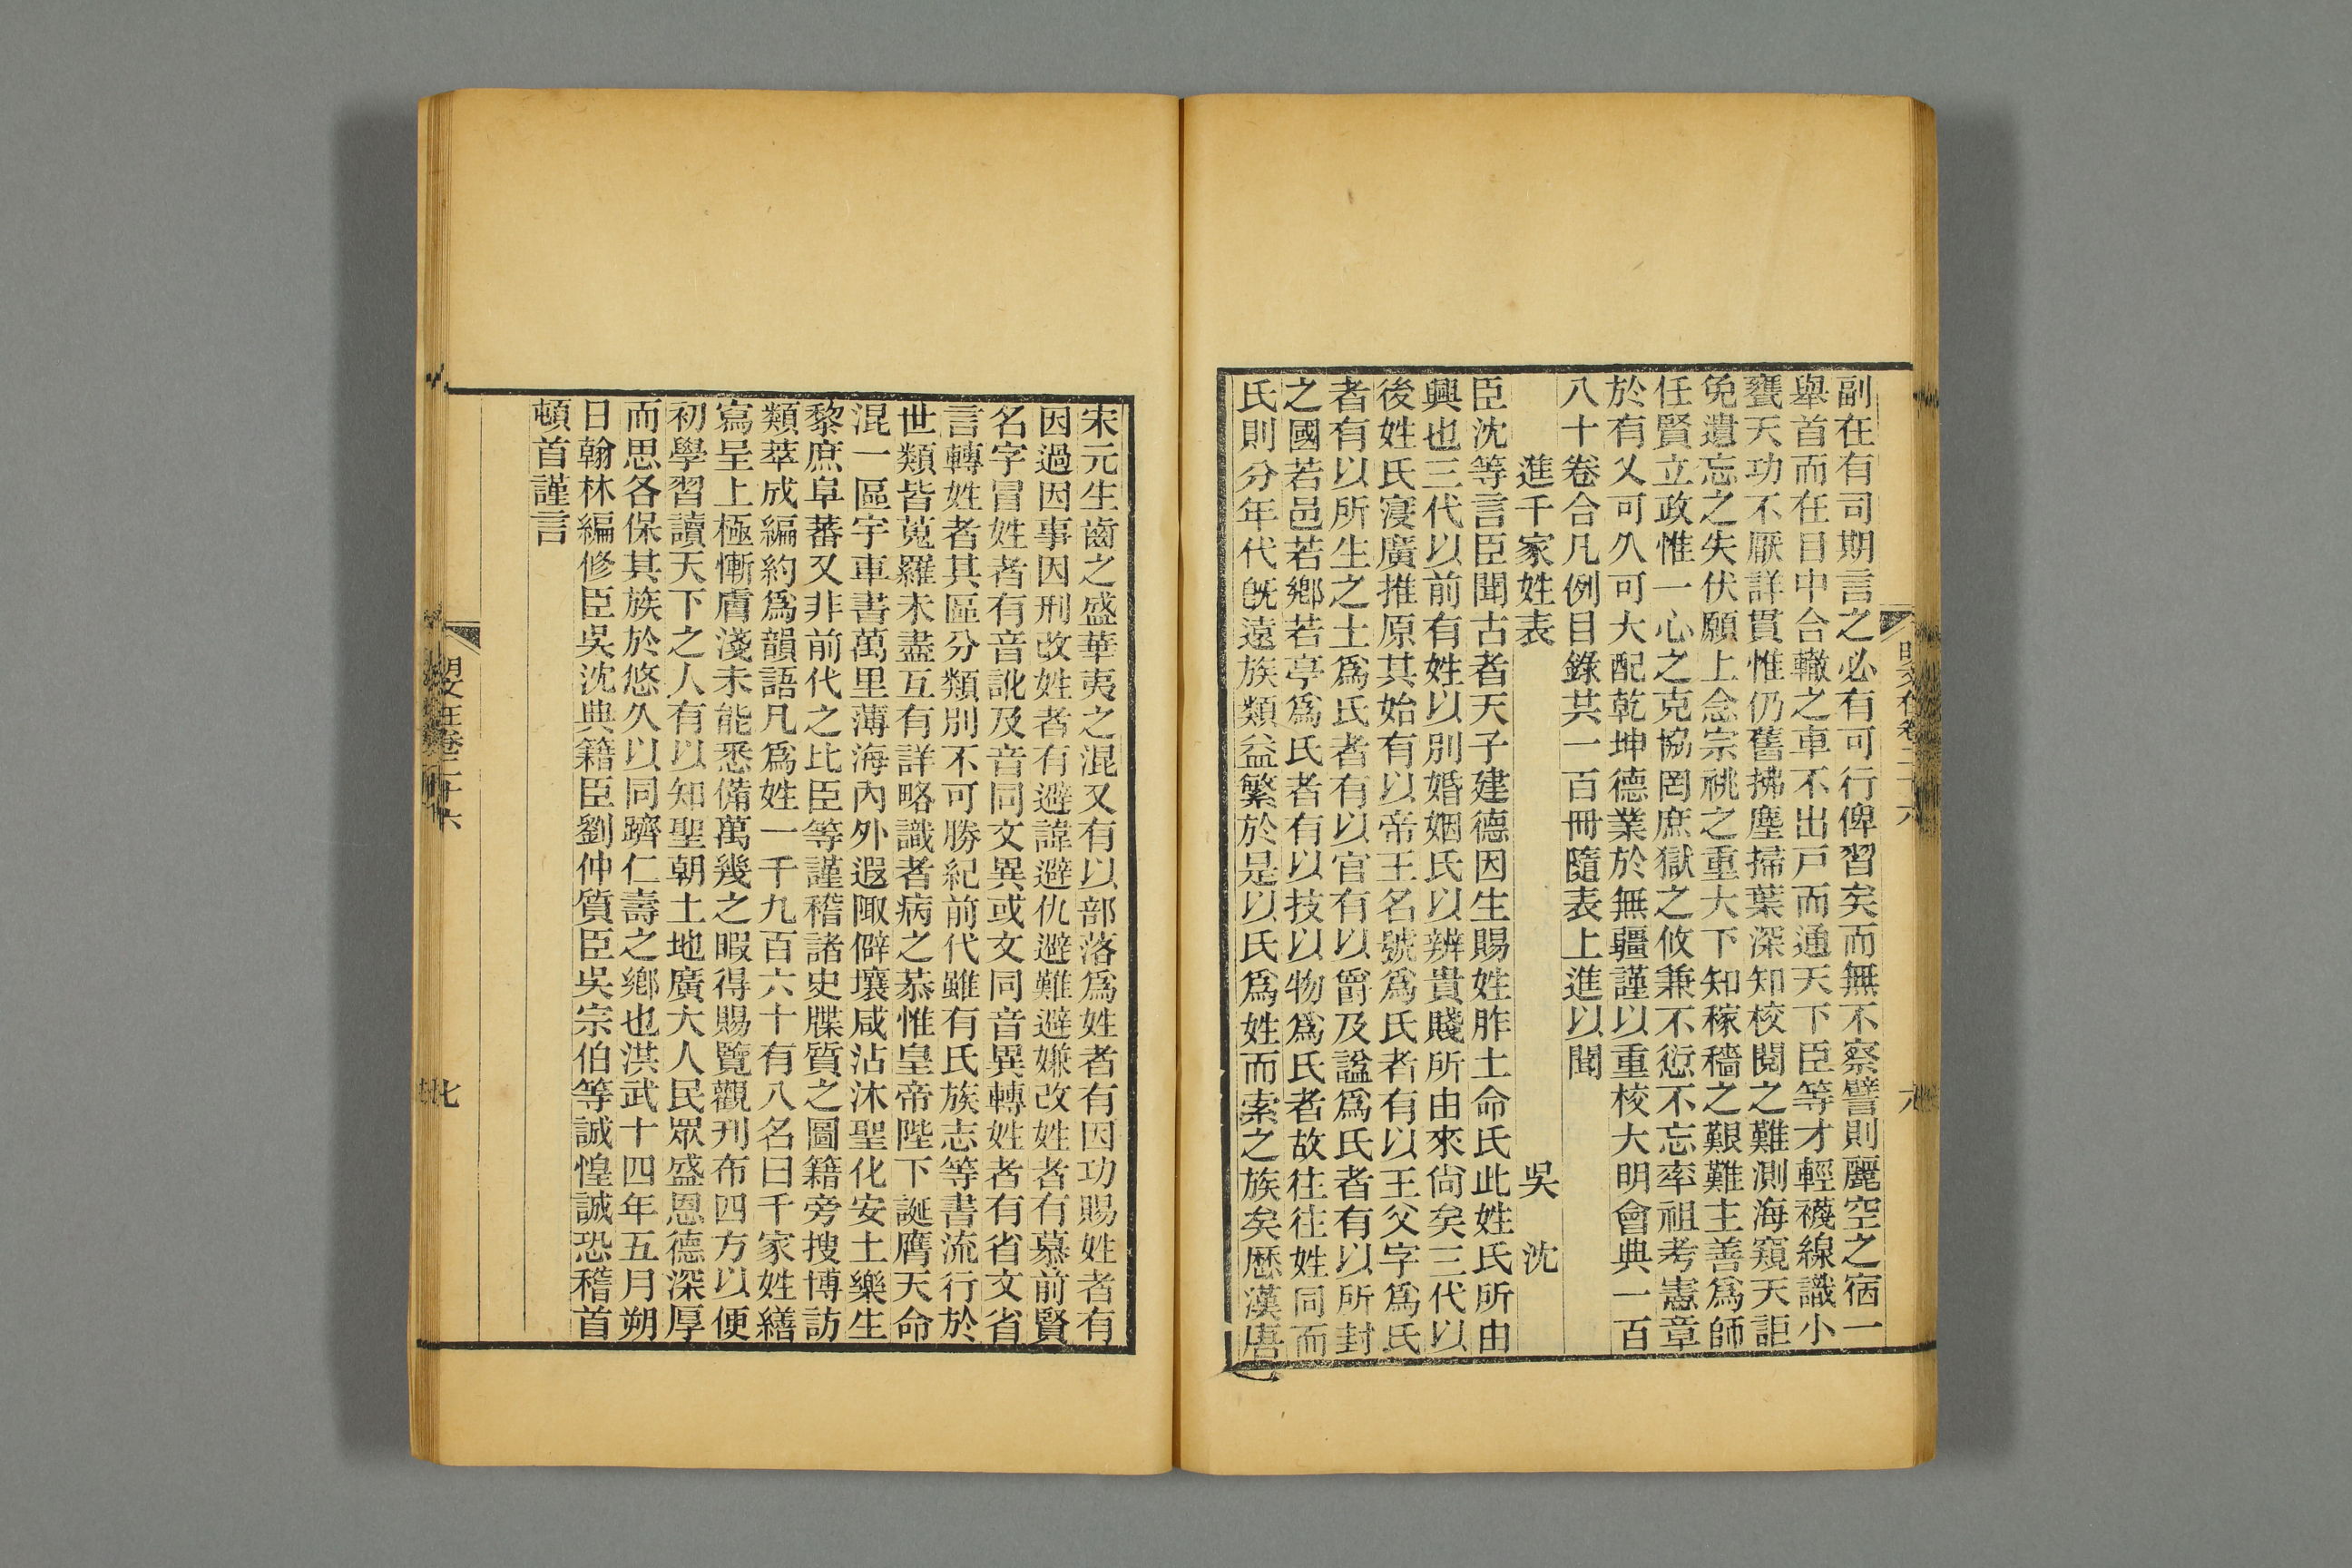 副在有司期言之必有可行俾習矣而無不察譬則麗空之宿一
舉首而在目中合轍之車不出戸而通天下臣等才輕襪線識小
甕天功不厭詳貫惟仍舊拂塵掃葉深知校閱之難測海窺天詎
免遺忘之失伏願上念宗祧之重大下知稼穡之艱難主善爲師
任賢立政惟一心之克協罔庶獄之攸兼不愆不忘率祖考憲章
於有乂可久可大配乾坤德業於無疆謹以重校大明會典一百
八十卷合凡例目錄共一百冊隨表上進以聞
進千家姓表 吳沈
臣沈等言臣聞古者天子建德因生賜姓胙土命氏此姓氏所由
興也三代以前有姓以別婚姻氏以辨貴賤所由來尙矣三代以
後姓氏寖廣推原其始有以帝王名號爲氏者有以王父字爲氏
者有以所生之土爲氏者有以官有以爵及諡爲氏者有以所封
之國若邑若鄉若亭爲氏者有以技以物爲氏者故往往姓同而
氏則分年代旣遠族類益繁於是以氏爲姓而索之族矣歷漢唐
六
宋元生齒之盛華夷之混又有以部落爲姓者有因功賜姓者有
因過因事因刑改姓者有避諱避仇避難避嫌改姓者有慕前賢
名字冒姓者有音訛及音同文異或文同音異轉姓者有省文省
言轉姓者其區分類別不可勝紀前代雖有氏族志等書流行於
世類皆蒐羅未盡互有詳略識者病之恭惟皇帝陛下誕膺天命
混一區宇車書萬里薄海內外遐陬僻壤咸沾沐聖化安土樂生
黎庶阜蕃又非前代之比臣等謹稽諸史牒質之圖籍旁搜博訪
類萃成編約爲韻語凡爲姓一千九百六十有八名曰千家姓繕
寫呈上極慚膚淺未能悉備萬幾之暇得賜覽觀刋布四方以便
初學習讀天下之人有以知聖朝土地廣大人民眾盛恩德深厚
而思各保其族於悠久以同躋仁壽之鄉也洪武十四年五月朔
日翰林編修臣吳沈典籍臣劉仲質臣吳宗伯等誠惶誠恐稽首
頓首謹言
七